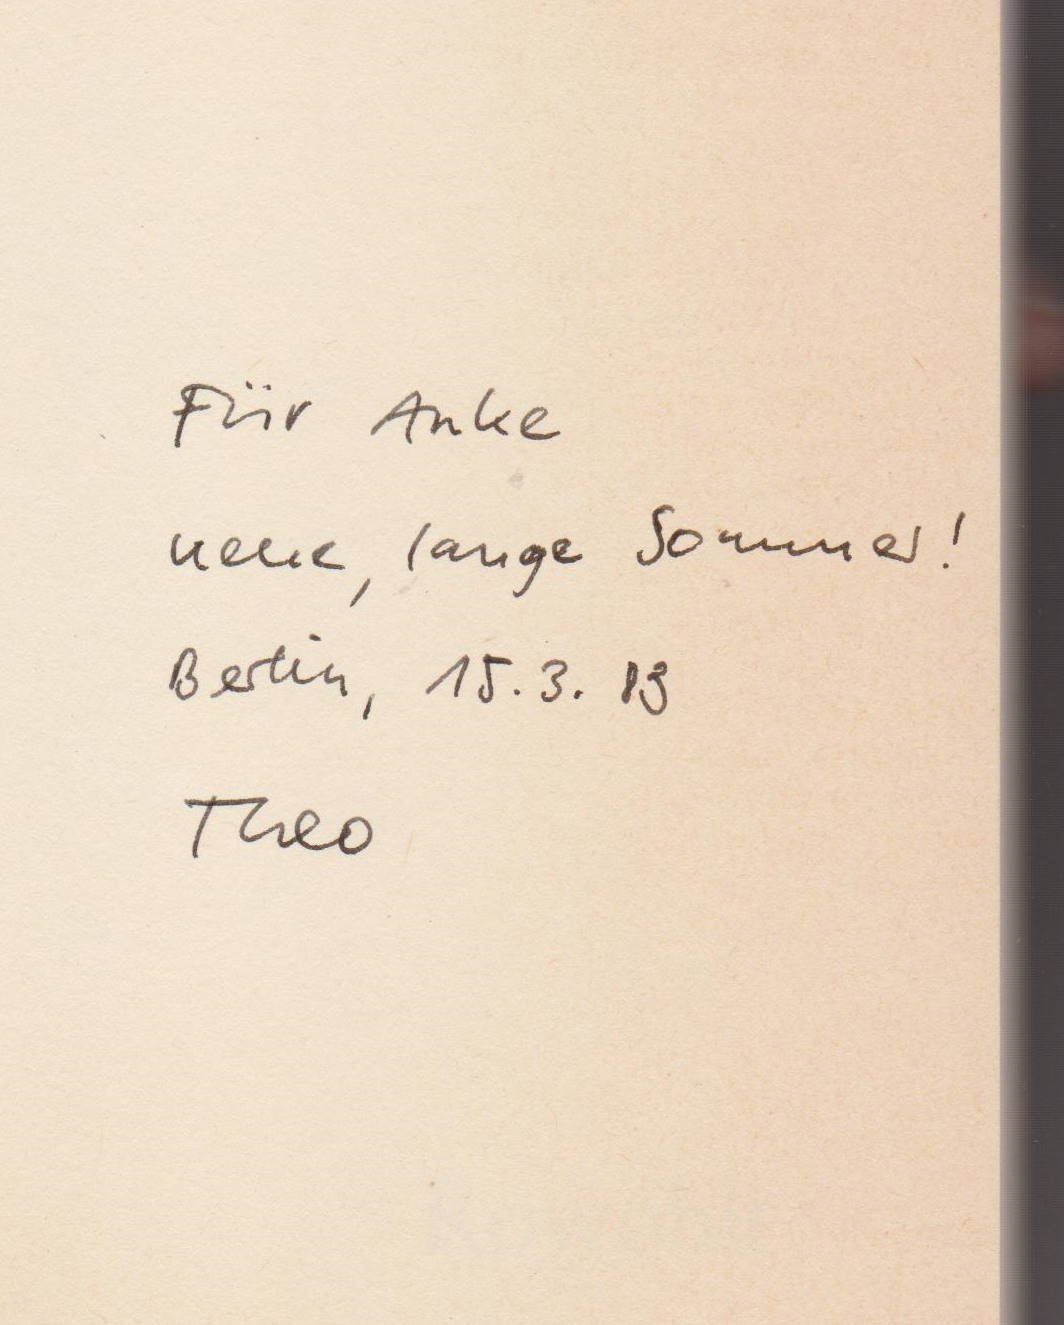 Für Anke
neue, lange Sommer!
Berlin, 15.3.
Theo